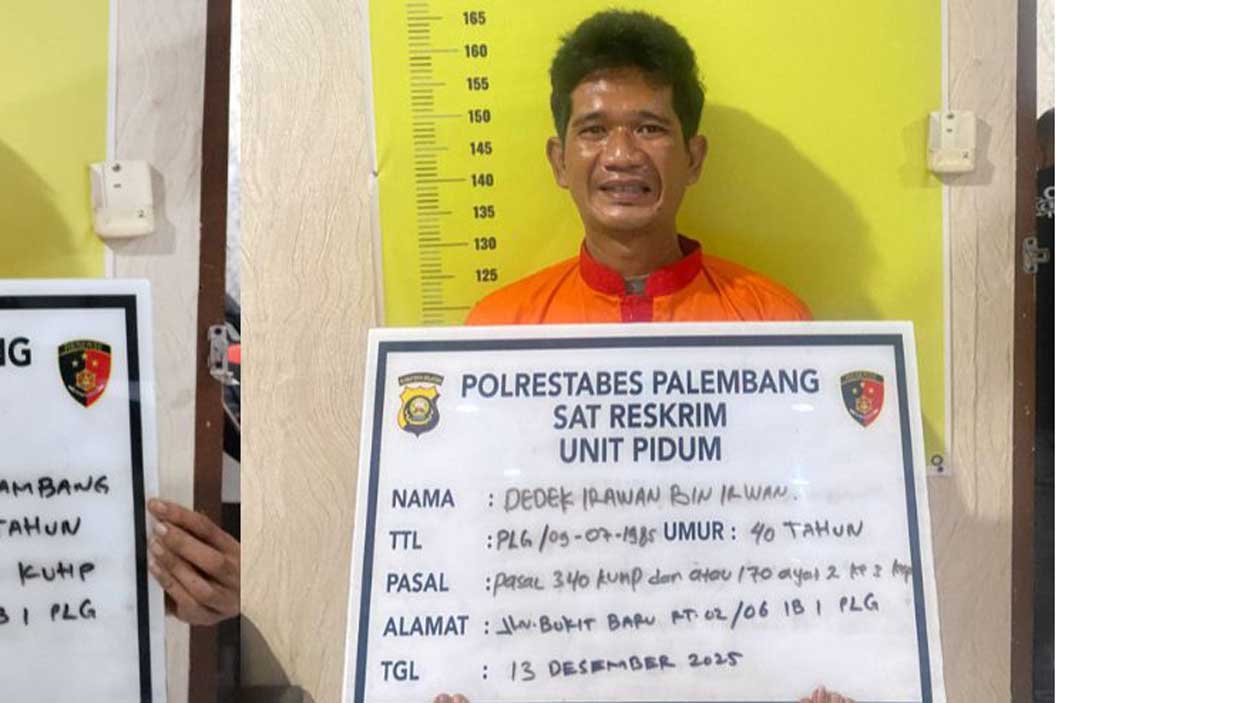 NG
AMBANG
TAHUN
KUHP
B I PLG
2
165
160
155
150
145
140
135
130
125
POLRESTABES PALEMBANG
SAT RESKRIM
UNIT PIDUM
NAMA : DEDEK IRAWAN BIN IRWAN.
TTL : PLG/09-07-1985 UMUR : 40 TAHUN
PASAL : pasal 340 KUHP dan atau 170 ayat 2 ke 3
ALAMAT : JLN. BUKIT BARU RT. 02/06 IB I PLG
TGL : 13 DESEMBER 2025